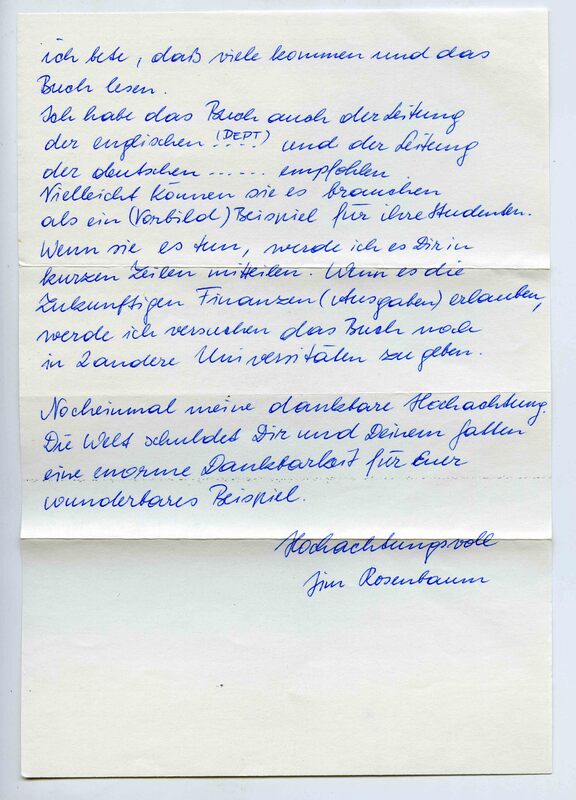 ich bete, daß viele kommen und das
Buch lesen.
Ich habe das Buch auch der Leitung
der englischen (DEPT) ..... und der Leitung
der deutschen ...... empfohlen.
Vielleicht können sie es brauchen
als ein (Vorbild) Beispiel für ihre Studenten.
Wenn sie es tun, werde ich es Dir in
kurzen Zeilen mitteilen. Wenn es die
Zukunftigen Finanzen (Ausgaben) erlauben,
werde ich versuchen das Buch noch
in 2 andere Universitäten zu geben.
Nocheinmal meine dankbare Hochachtung.
Die Welt schuldet Dir und Deinem Gatten
eine enorme Dankbarkeit für Euer
wunderbares Beispiel.
Hochachtungsvoll
Jim Rosenbaum